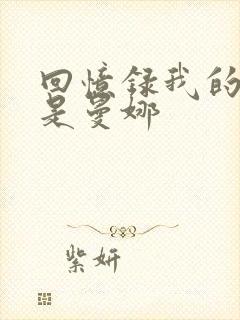 回憶録我的
是曼娜
紫妍